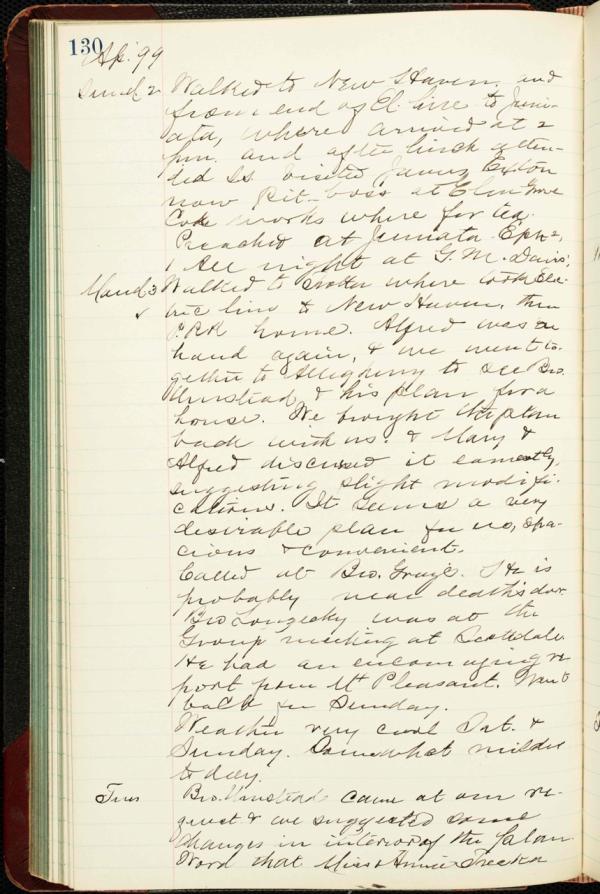 130
Ap. '99
Sund. 2 Walked to New Haven, and
from end of El. line to Juni-
ata, where arrived at 2
pm. and after lunch atten-
ded S.S. visited James Exton
now Pit-boss at Elm Grove
Coke works where for tea.
Preached at Juniata Eph 2,
1 All night at G. M. Davis',
Mond. 3 Walked to where took Elec-
tric line to New Haven, then
P.RR home. Alfred was on
hand again, & we went to-
gether to Allegheny to see Bro.
Umstead & his plan for a
house. We brought the plan
back with us. & Mary &
Alfred discussed it earnestly,
suggesting slight modifi-
cations. It seems a very
desirable plan for us, spa-
cious & convenient.
Called at Bro. He is
probably near death's door.
Bro was at the
Group meeting at Scottdale.
He had an encouraging re-
port from Mt Pleasant. Went
back for Sunday.
Weather very cool Sat. &
Sunday. Somewhat milder
to day.
Tues Bro. Umstead came at our re-
quest & we suggested some
changes in interior of the plan
Word that Miss Annie